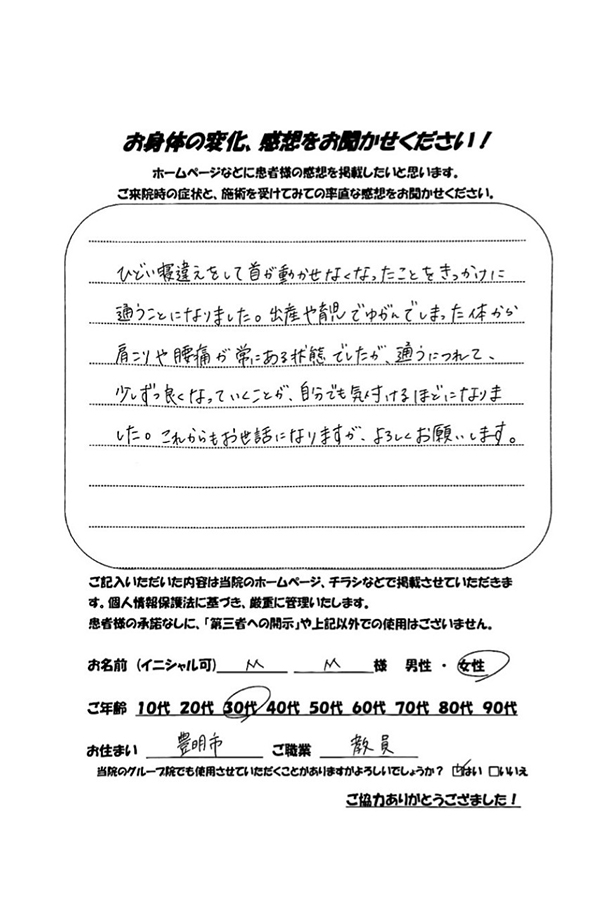 お身体の変化、感想をお聞かせください!
ホームページなどに患者様の感想を掲載したいと思います。
ご来院時の症状と、施術を受けてみての率直な感想をお聞かせください。
ひどい寝違えをして首が動かせなくなったことをきっかけに
通うことになりました。出産や育児でゆがんでしまった体から
肩こりや腰痛が常にある状態でしたが、通うにつれて、
少しずつ良くなっていくことが、自分でも気付けるほどになりま
した。これからもお世話になりますが、よろしくお願いします。
ご記入いただいた内容は当院のホームページ、チラシなどで掲載させていただきま
す。個人情報保護法に基づき、厳重に管理いたします。
患者様の承諾なしに、「第三者への開示」や上記以外での使用はございません。
お名前(イニシャル可) M M 様 男性・女性
ご年齢 10代 20代 30代 40代 50代 60代 70代 80代 90代
お住まい 豊明市 ご職業 教員
当院のグループ院でも使用させていただくことがありますがよろしいでしょうか? ☑はい □いいえ
ご協力ありがとうござました!